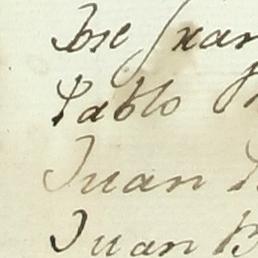 Jose Juan
Pablo
Juan
Juan B